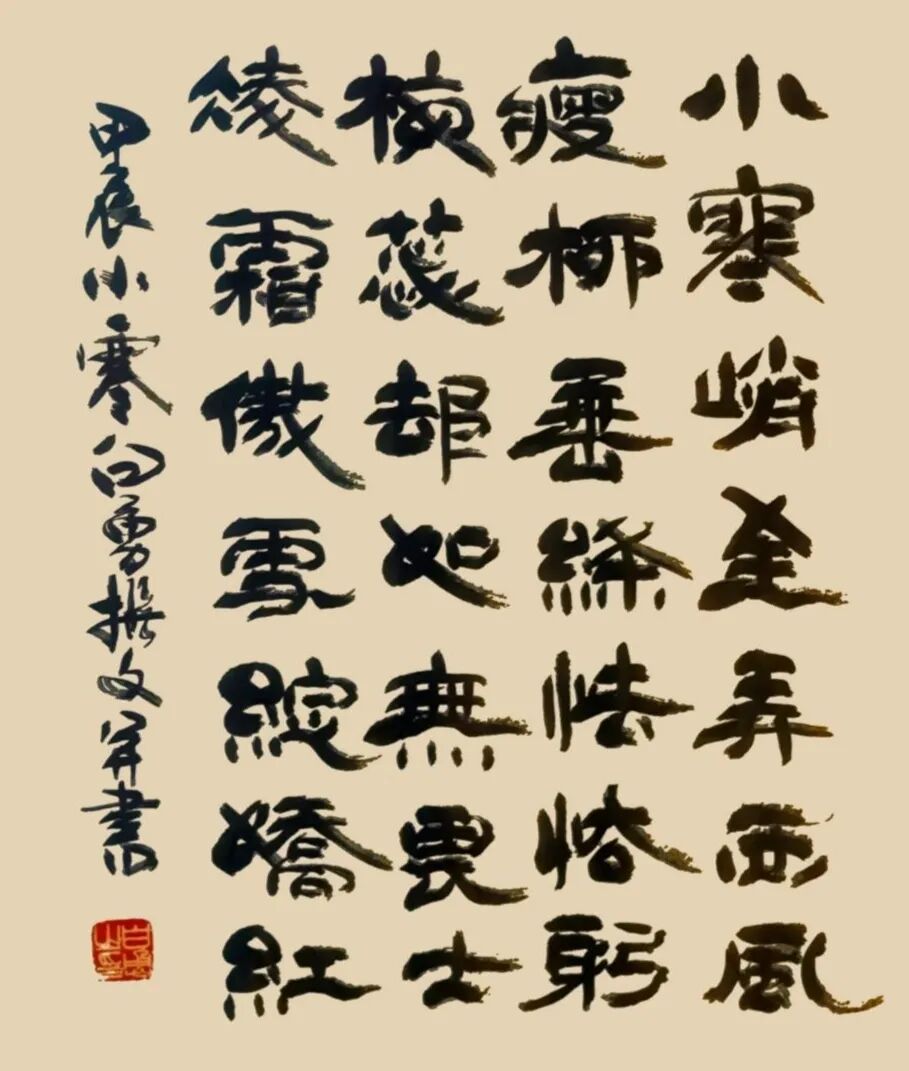 小寒峭奎弄西風
瘦柳垂絛怯恪躬
梅蕊却如無畏士
凌霜傲雪綻嬌紅
甲辰小寒白勇撰文并書